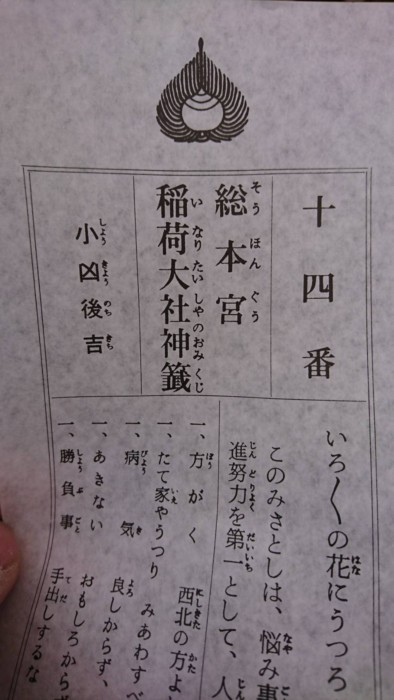 十四番
総本宮
稲荷大社神籤
小凶後吉
いろ〱の花にうつろ
このみさとしは、悩み事
進努力を第一として、人
一、方がく 西北の方よ
一、たて家やうつり みあわすべ
一、病気 良しからず、
一、あきない おもしろから
一、勝負事 手出しするな